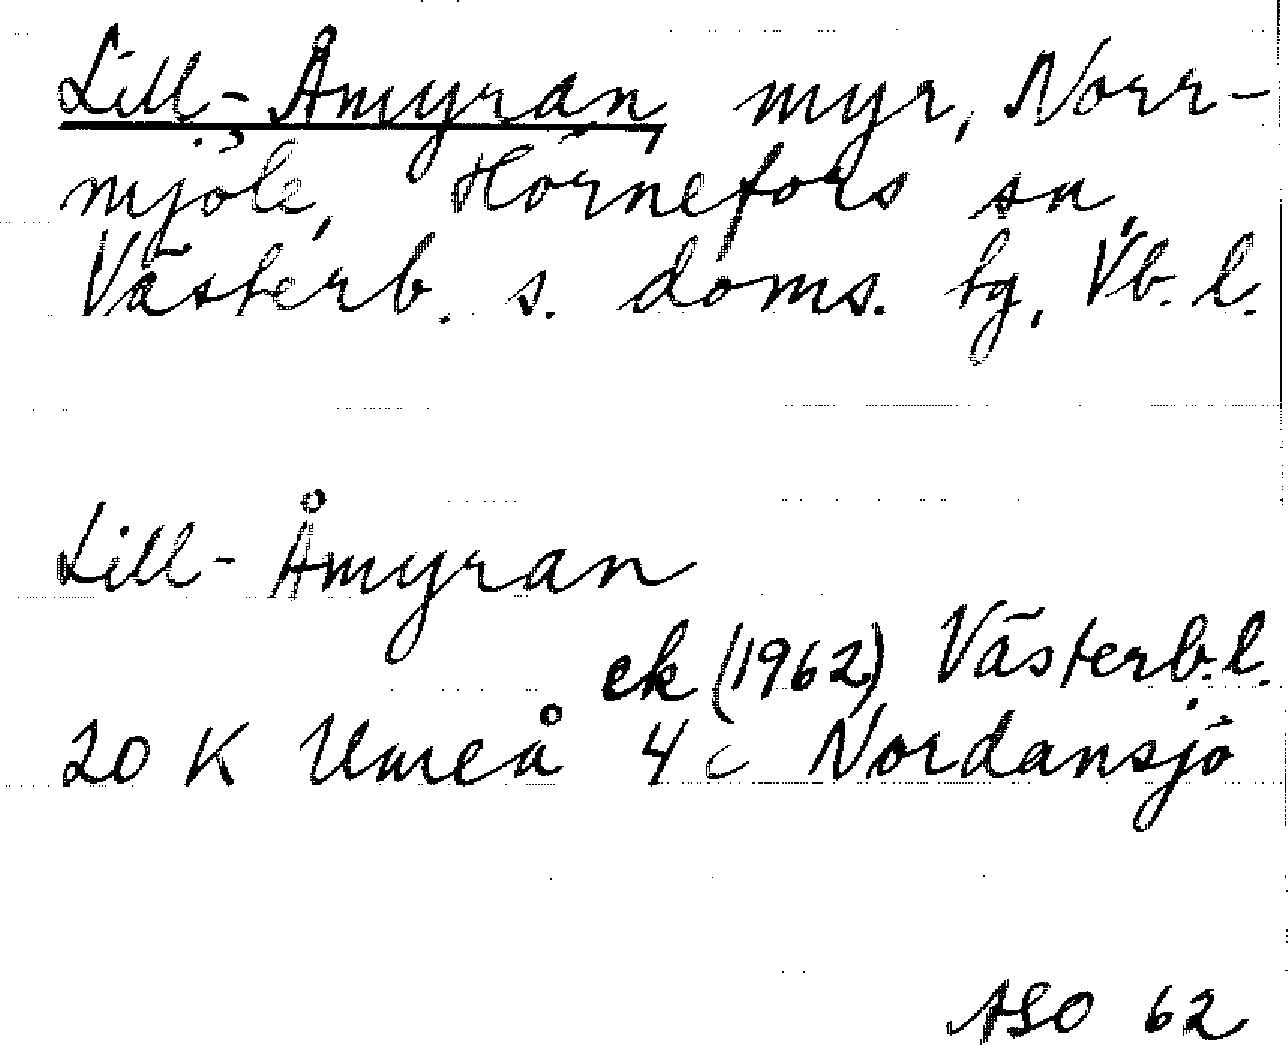 Lill-Åmyran, myr, Norr-
mjöle, Hörnefors sn,
Västerb. s. doms. tg, Vb. l.
Lill-Åmyran
ek (1962) Västerb. l.
20 K Umeå 4 c Nordansjö
ASO 62